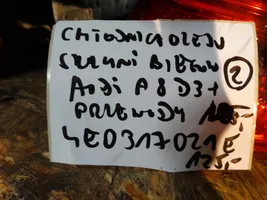 CHŁODNICA OLEJU
SKRZYNI BIEGÓW
2
AUDI A8 D3 +
PRZEWODY
4E0317021E
125,-